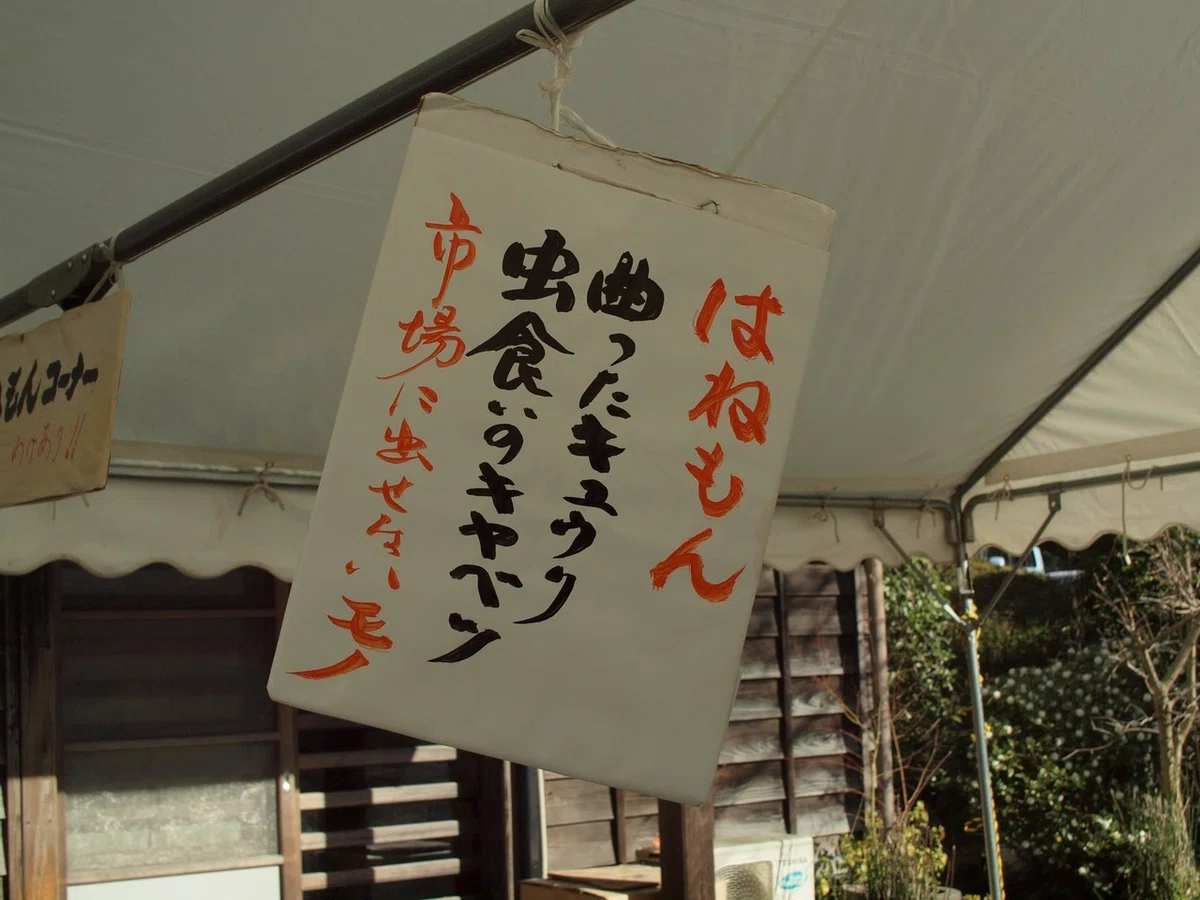 はねもん
曲ったキュウリ
虫食いのキャベツ
市場に出せないモノ
もんコーナー
わけあり!!
TOSHIBA